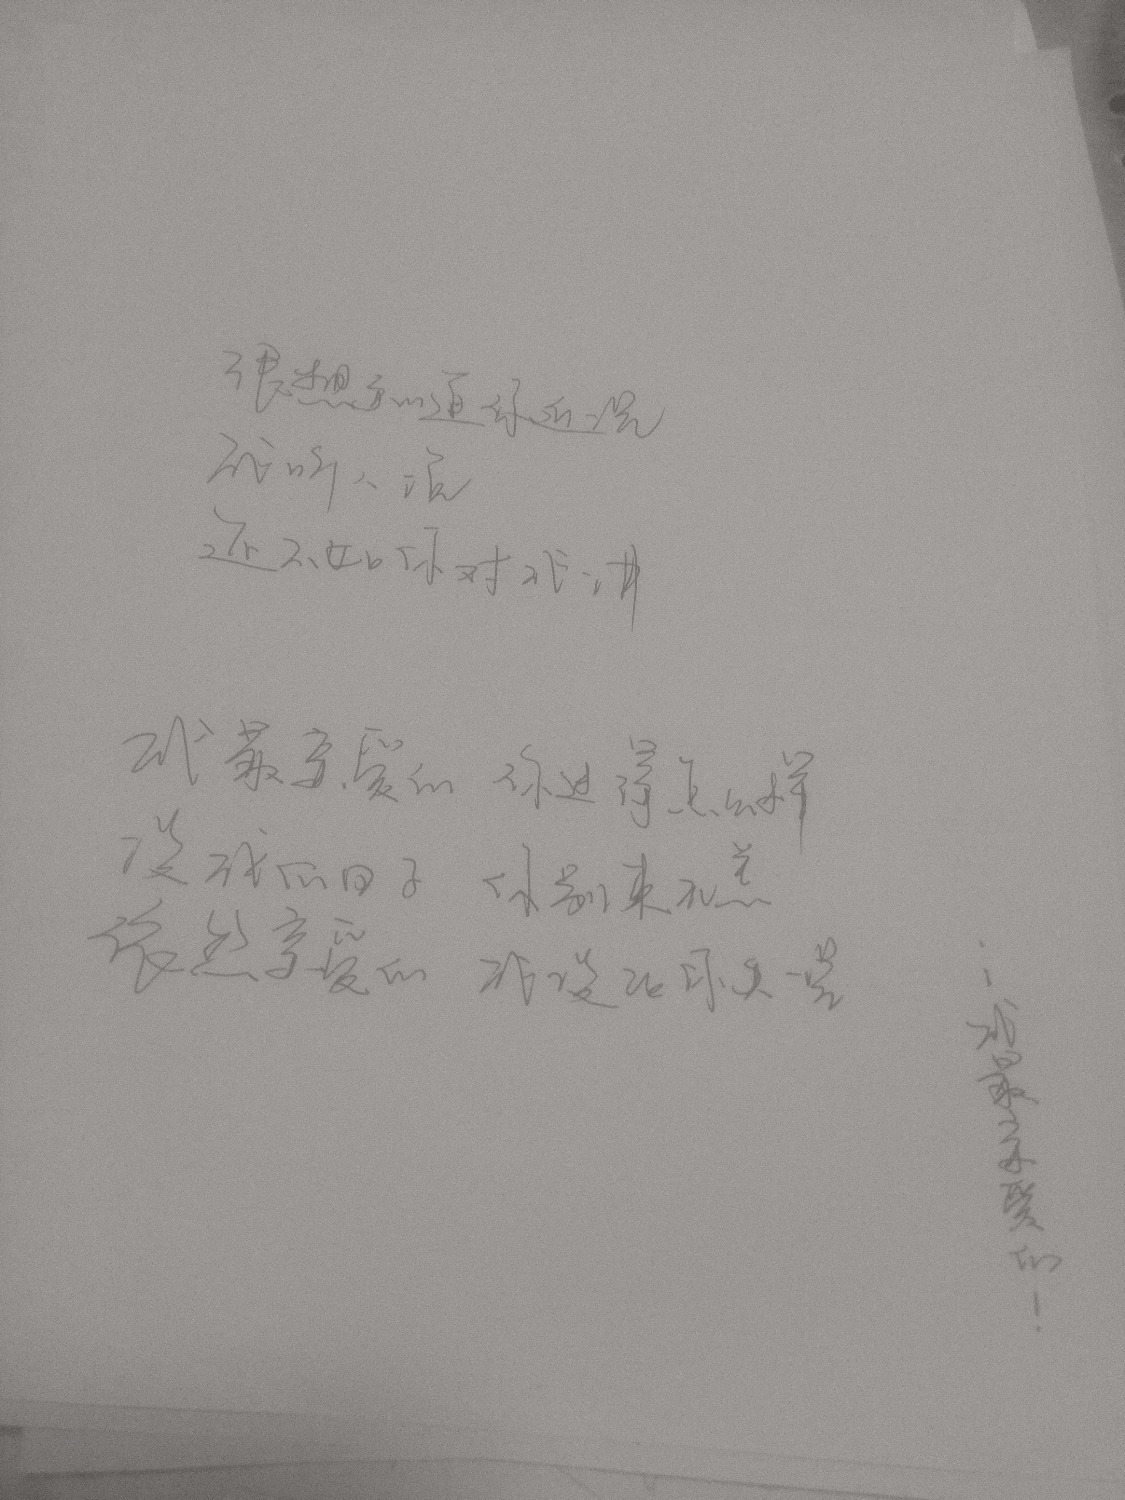 很想知道你近况
我听人说
还不如你对我讲
我最亲爱的 你过得怎么样
没我的日子 你别来无恙
依然亲爱的 我没让你失望
我最亲爱的